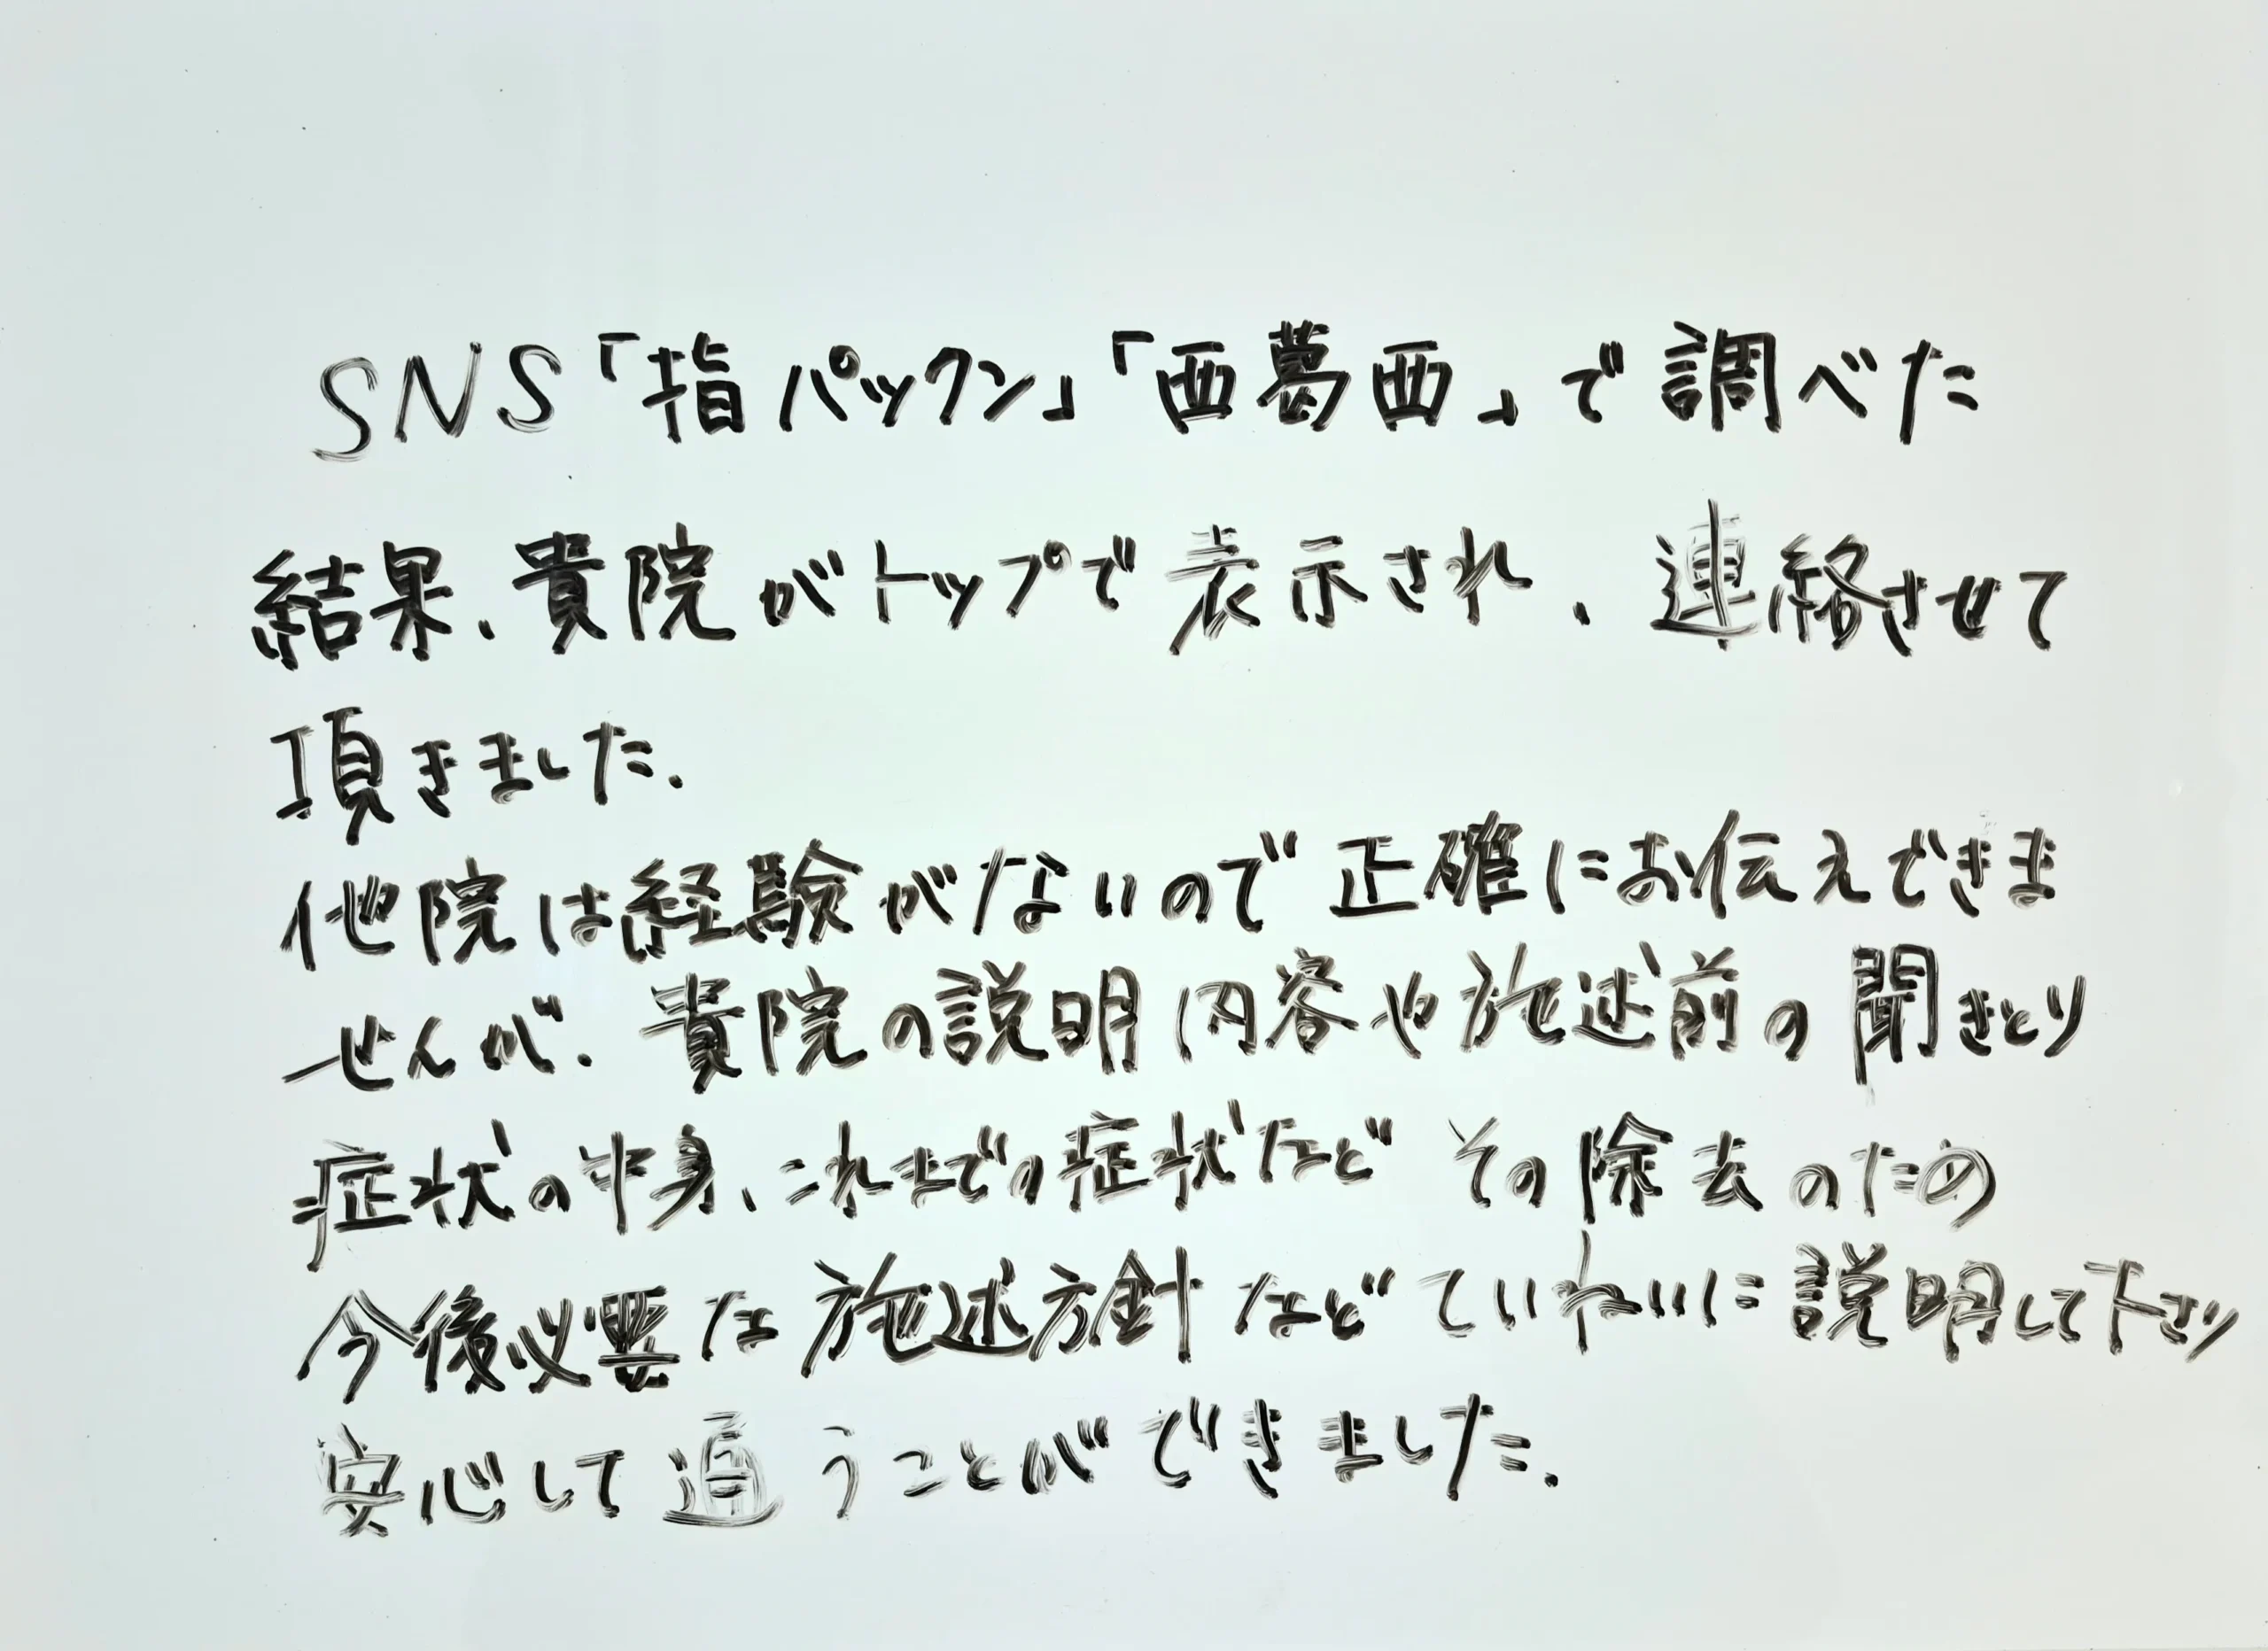 SNS「指パックン」「西葛西」で調べた
結果、貴院がトップで表示され、連絡させて
頂きました。
他院は経験がないので正確にお伝えできま
せんが、貴院の説明内容や施述前の聞きとり
症状の中身、これまでの症状などその除去のため
今後必要な施述方針などていねいに説明して下さり
安心して通うことができました。